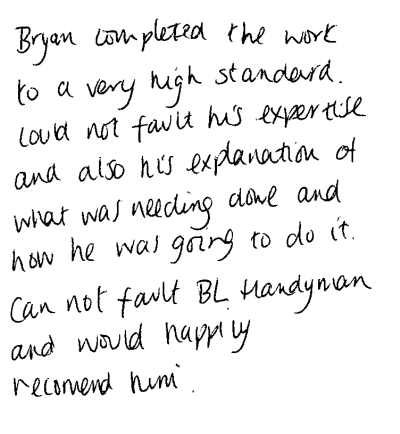 Bryan completed the work
to a very high standard.
Could not fault his expertise
and also his explanation of
what was needing done and
how he was going to do it.
Can not fault BL Handyman
and would happily
recomend him.